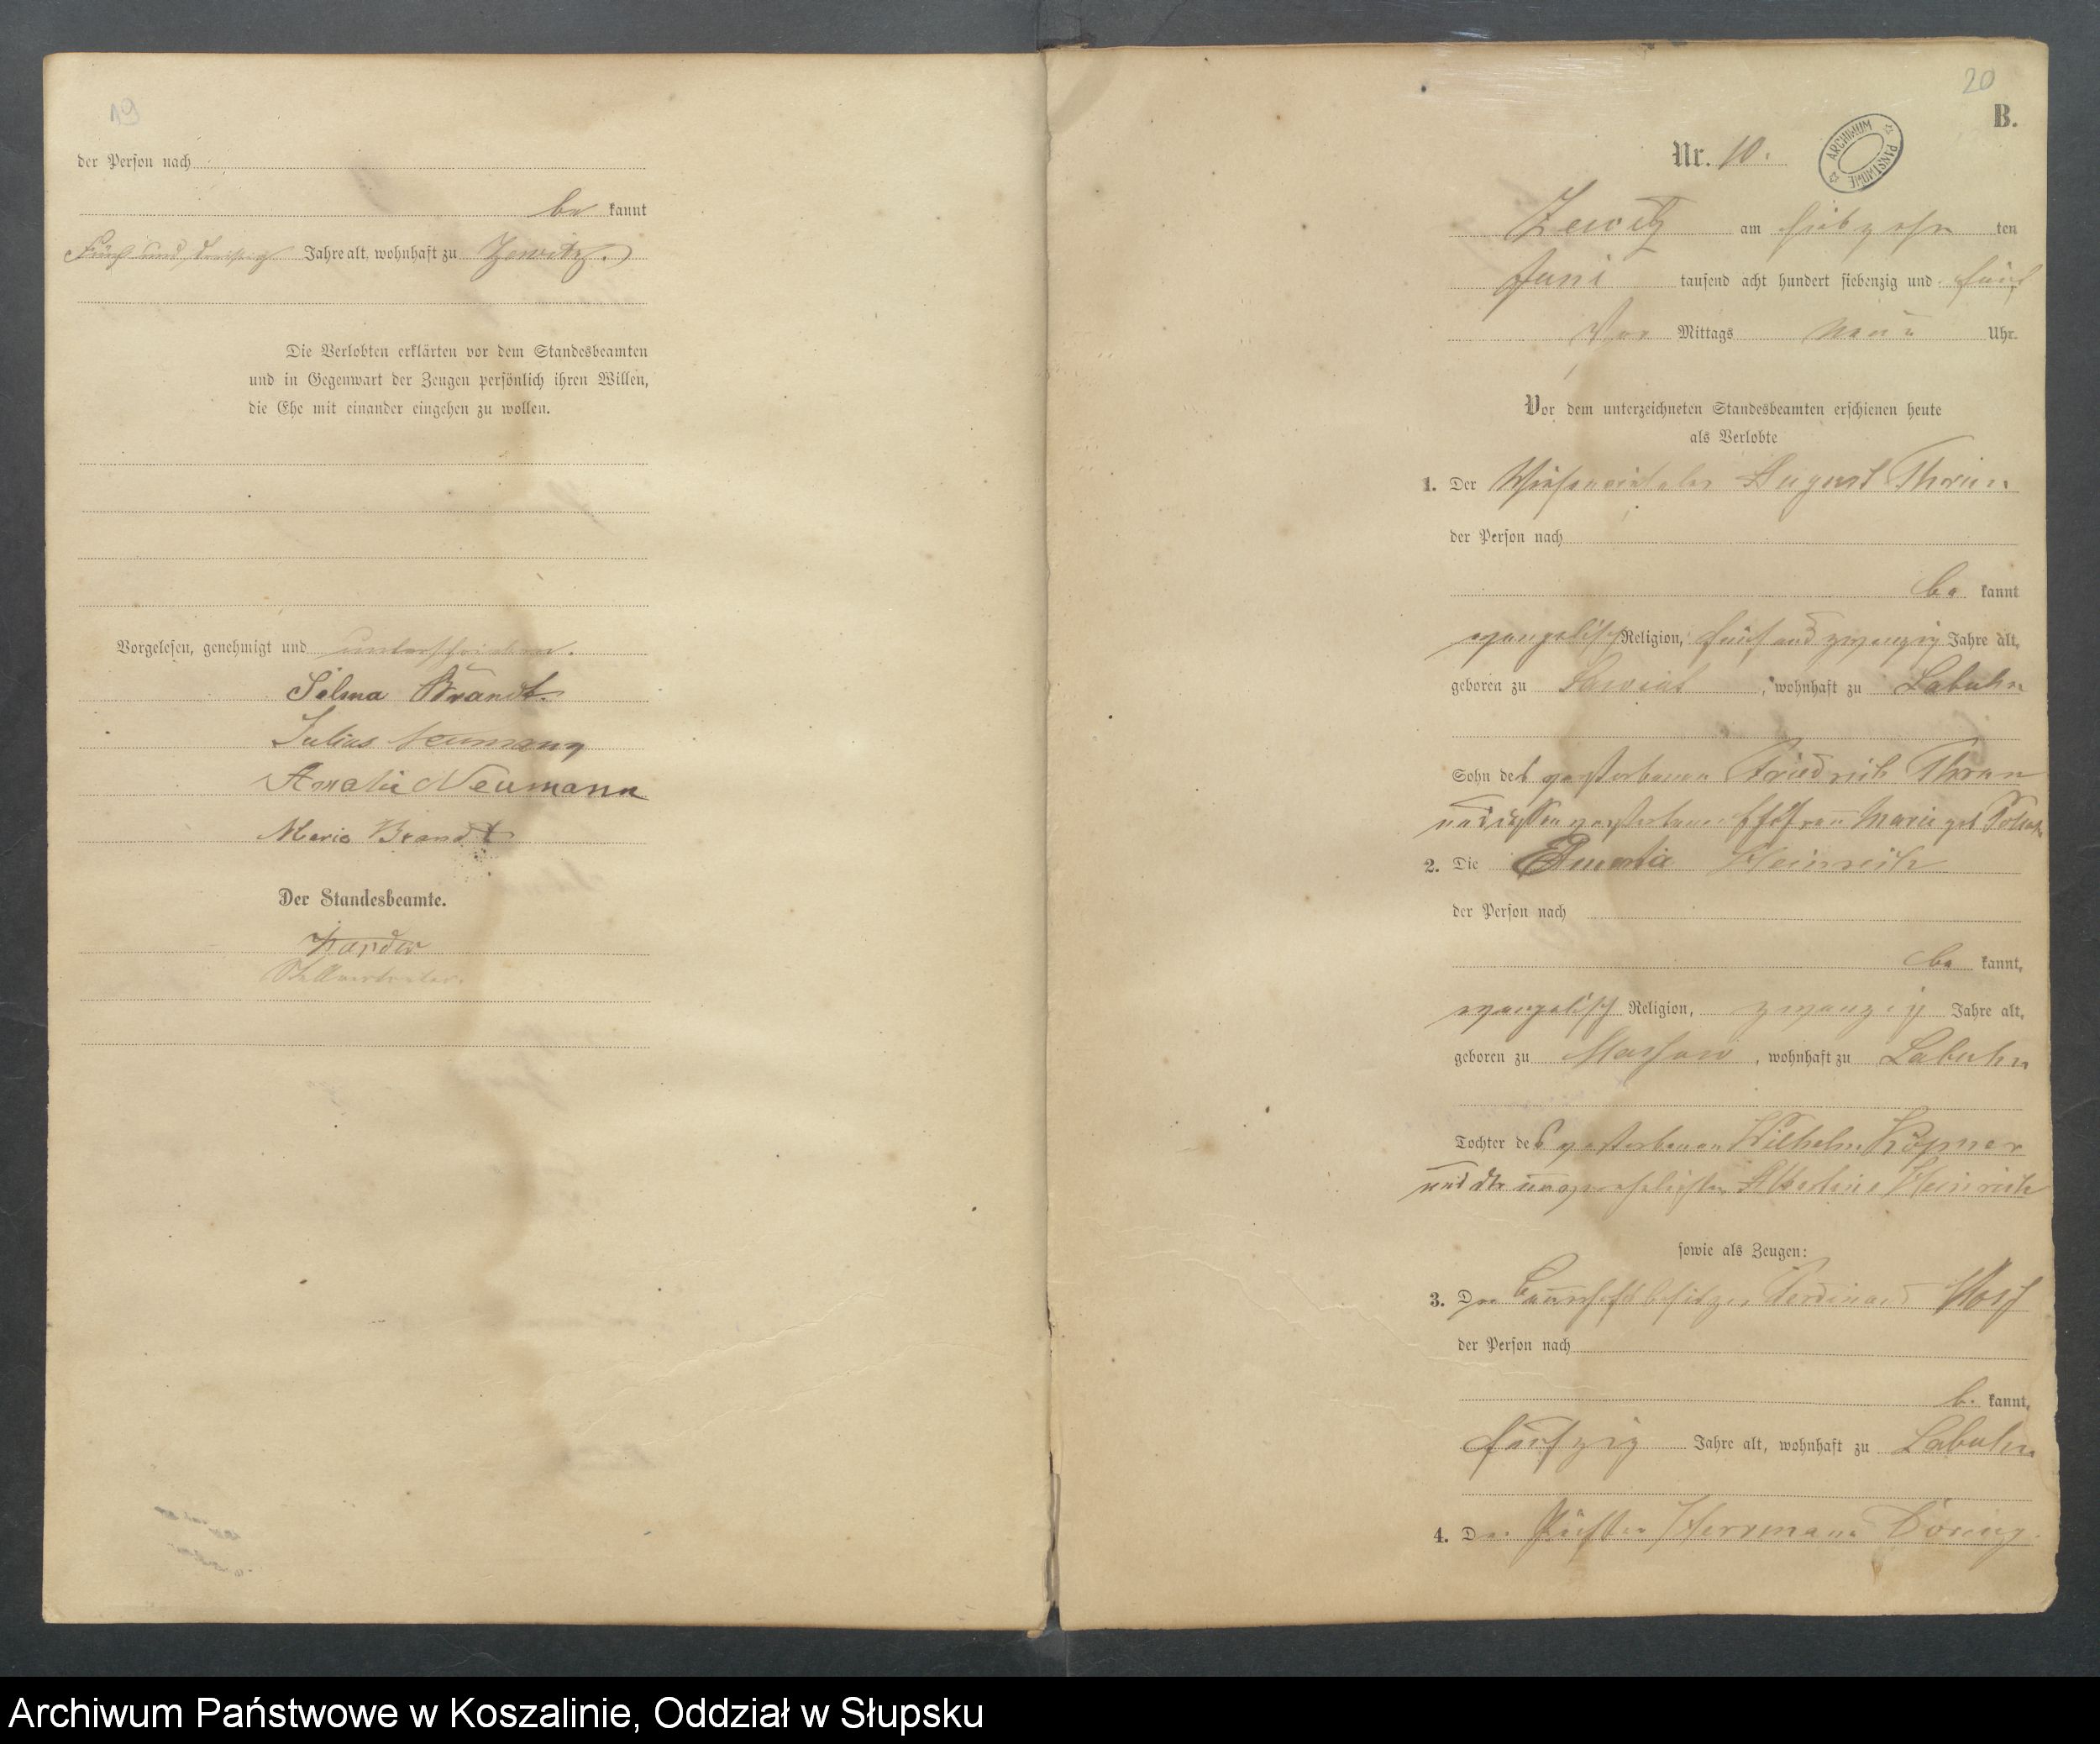 19
der Person nach
be kannt
Fünf und dreißig Jahre alt, wohnhaft zu Zewitz.
Die Verlobten erklärten vor dem Standesbeamten
und in Gegenwart der Zeugen persönlich ihren Willen,
die Ehe mit einander eingehen zu wollen.
Vorgelesen, genehmigt und unterschrieben.
Selma Brandt
Julius Neumann
Amalie Neumann
Marie Brandt
Der Standesbeamte.
Stellvertreter.
20
B.
Nr. 10.
ARCHIWUM PAŃSTWOWE
Zewitz am siebzehn ten
Juni tausend acht hundert siebenzig und fünf
Vor Mittags neun Uhr.
Vor dem unterzeichneten Standesbeamten erschienen heute
als Verlobte
1. Der August Thrun
der Person nach
be kannt
evangelisch Religion, fünf und zwanzig Jahre alt,
geboren zu , wohnhaft zu Labuhn
Sohn des verstorbenen Friedrich Thrun
und dessen verstorbenen Ehefrau Marie geb
2. Die Amalia Heinrich
der Person nach
be kannt,
evangelisch Religion, zwanzig Jahre alt,
geboren zu Massow, wohnhaft zu Labuhn
Tochter des verstorbenen Wilhelm
und der unverehelichten Albertine Heinrich
sowie als Zeugen:
3. Der Ferdinand
der Person nach
be kannt,
fünfzig Jahre alt, wohnhaft zu Labuhn
4. Der Herrmann Döring.
Archiwum Państwowe w Koszalinie, Oddział w Słupsku